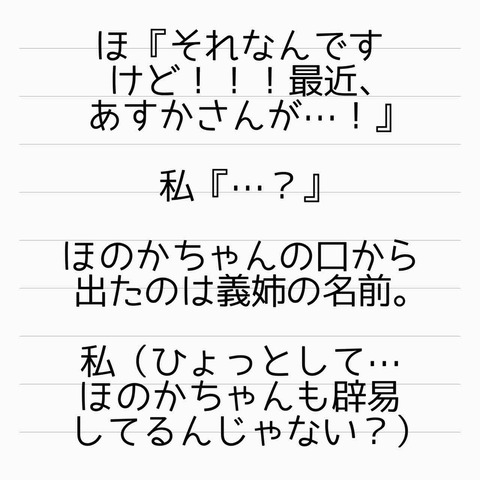 ほ『それなんです
けど！！！最近、
あすかさんが…！』
私『…？』
ほのかちゃんの口から
出たのは義姉の名前。
私（ひょっとして…
ほのかちゃんも辟易
してるんじゃない？）